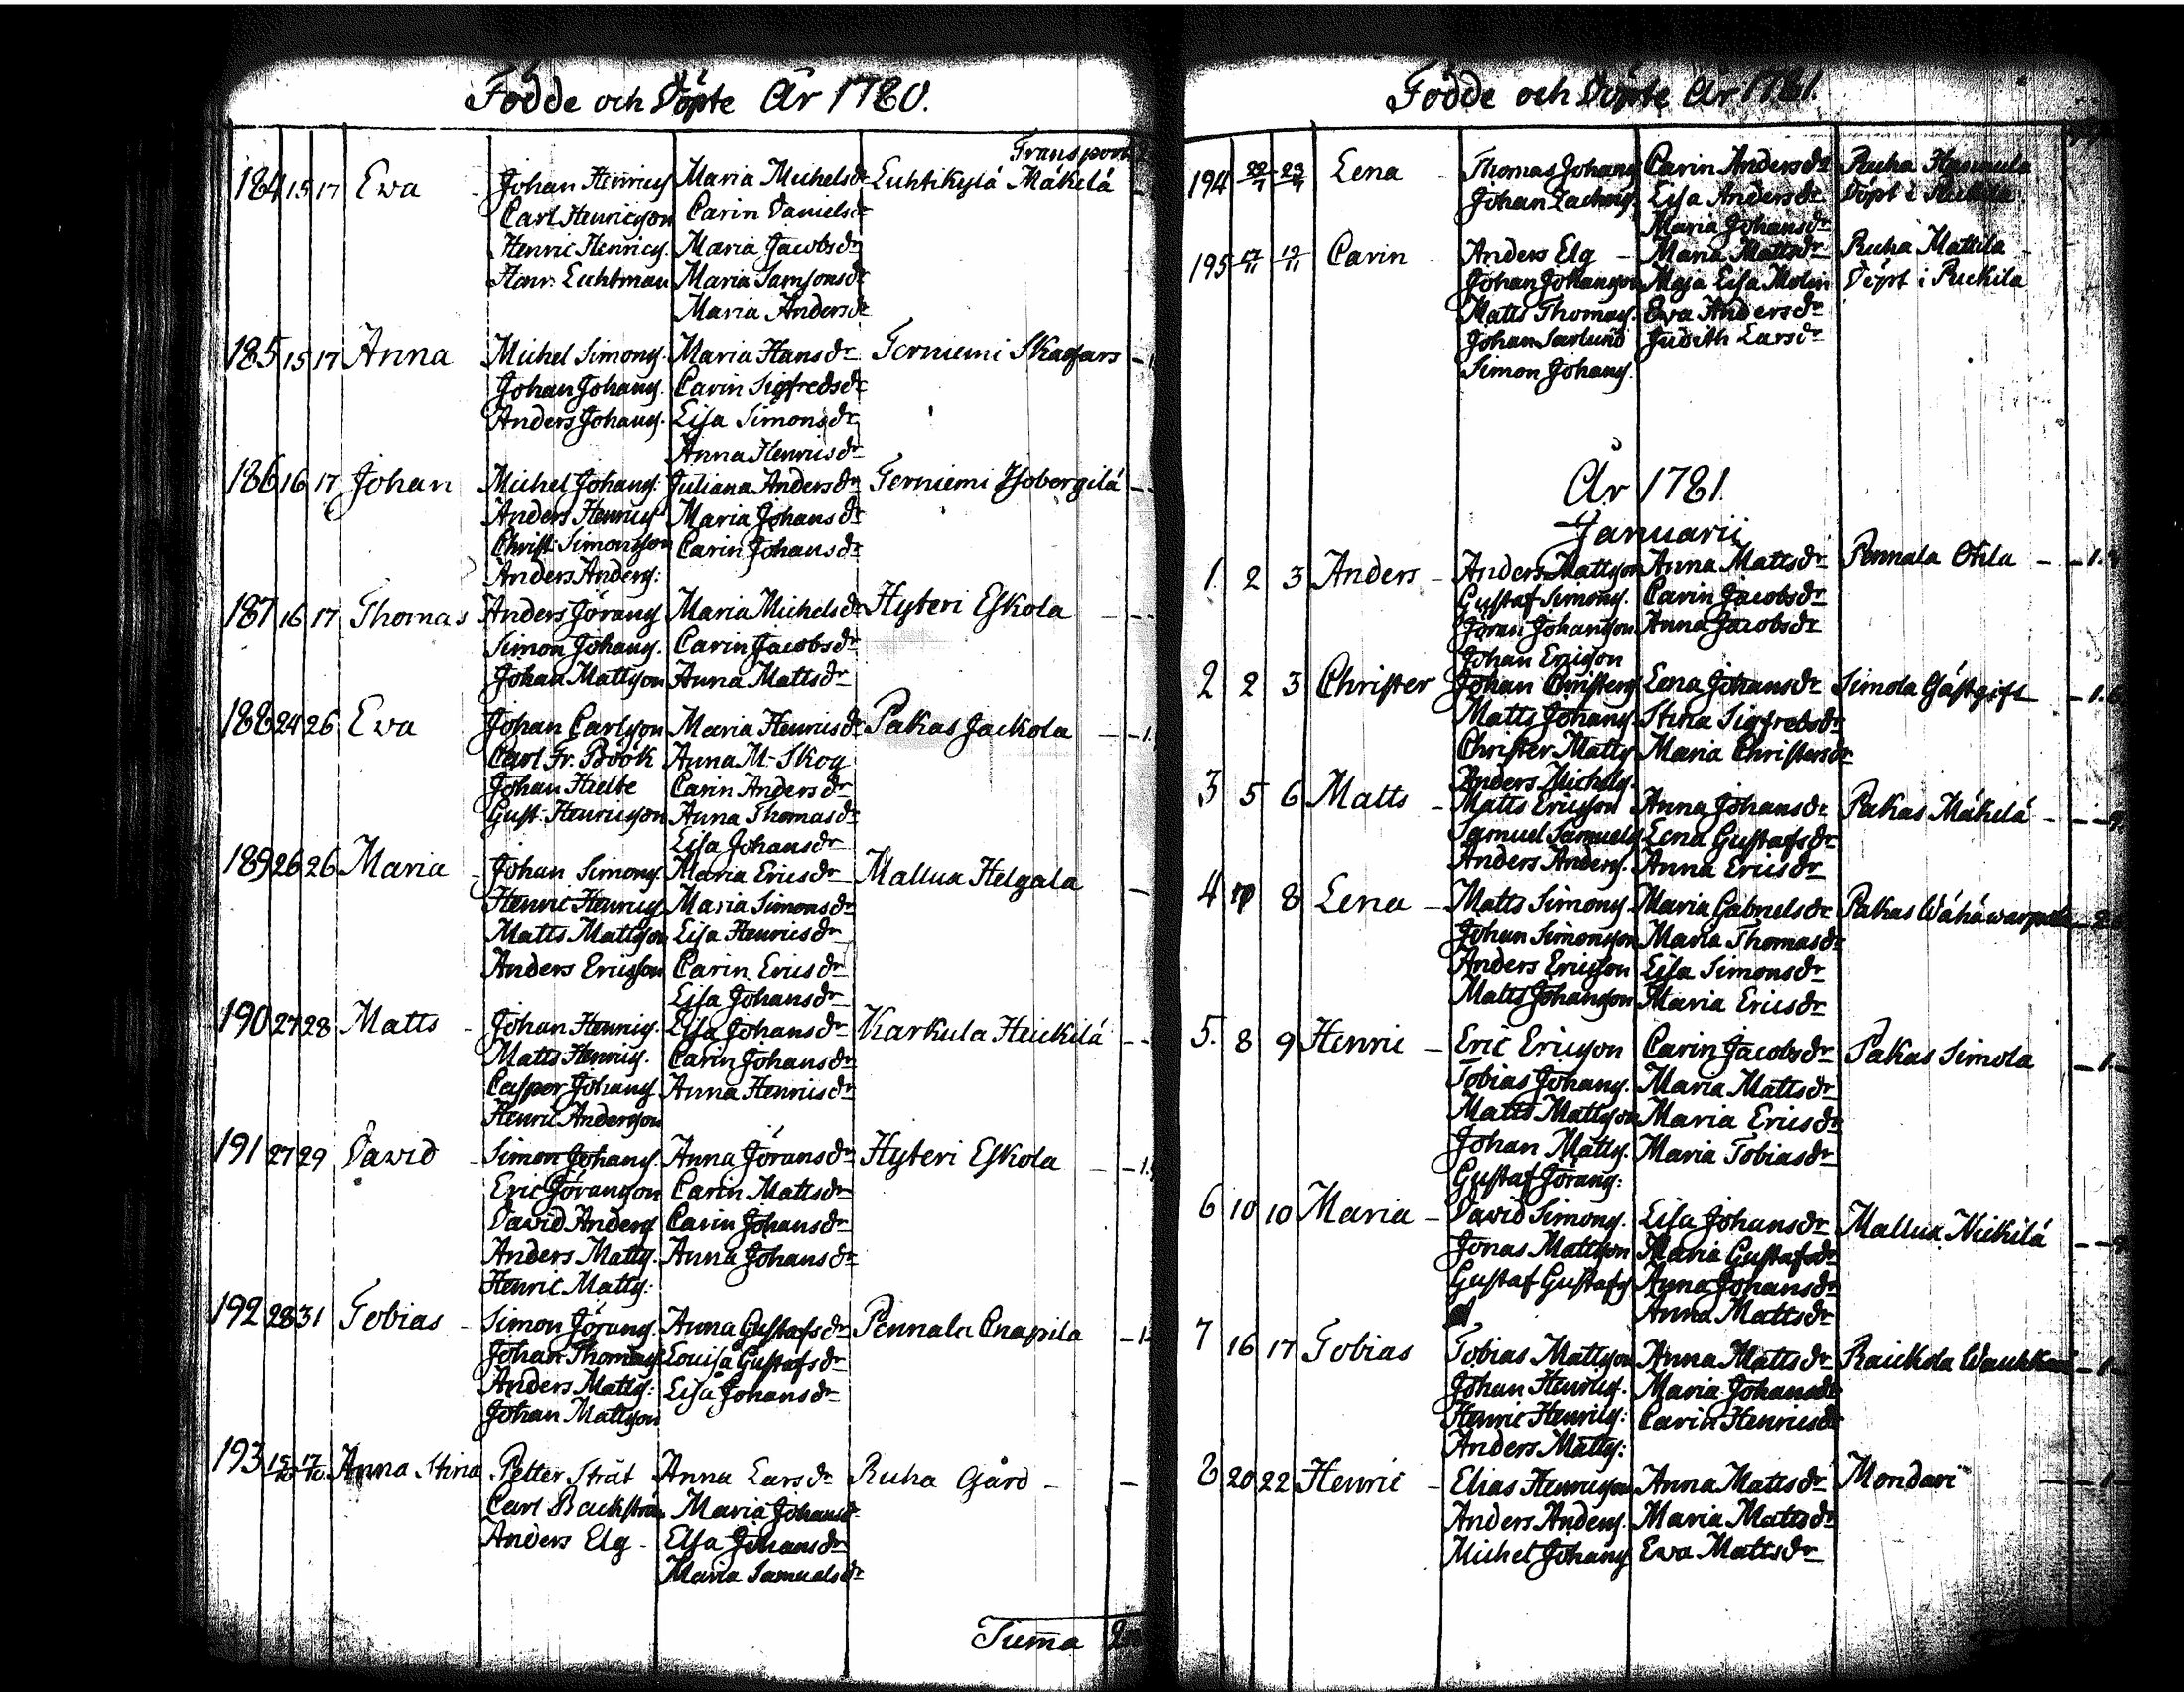 Födde och Döpte År 1780.
Transport
184 15 17 Ewa - Johan Henrics. Maria Michelsdr Luhtikylä Mäkelä
Carl Henricsson Carin Danielsdr
Henric Henrics. Maria Jacobsdr
Henr. Luhtman Maria Samsonsdr
Maria Andersdr
185 15 17 Anna Michel Simons. Maria Hansdr Terniemi Skasfars
Johan Johans. Carin Sigfredsdr
Anders Johans. Lisa Simonsdr
Anna Henricsdr
186 16 17 Johan Michel Johans: Juliana Andersdr Terniemi Isobergilä
Anders Henrics Maria Johansdr
Christ: Simonsson Carin Johansdr
Anders Anders:
187 16 17 Thomas Anders Jörans Maria Michelsdr Hyteri Eskola
Simon Johans. Carin Jacobsdr
Johan Mattsson Anna Mattsdr
188 24 26 Ewa Johan Carlsson Maria Henricsdr Pakas Jackola
Carl Fr. Böök Anna M. Skog
Johan Hielte Carin Andersdr
Gust. Henricsson Anna Thomasdr
Lisa Johansdr
189 26 26 Maria - Johan Simons. Maria Ericsdr Mallua Helgala
Henric Henrics Maria Simonsdr
Matts Mattsson Lisa Henricsdr
Anders Ericsson Carin Ericsdr
Lisa Johansdr
190 27 28 Matts - Johan Henrics. Lisa Johansdr Karkula Heickilä
Matts Henrics. Carin Johansdr
Casper Johans Anna Henricsdr
Henric Andersson
191 27 29 David - Simon Johans. Anna Jöransdr Hyteri Eskola
Eric Jöransson Carin Mattsdr
David Anders Carin Johansdr
Anders Matts. Anna Johansdr
Henric Matts:
192 28 31 Tobias - Simon Jörans. Anna Gustafsdr Pennala Cnapila
Johan Thomass Louisa Gustafsdr
Anders Matts: Lisa Johansdr
Johan Mattsson
193 15/10 17/10 Anna Stina Petter Strät Anna Larsdr Ruha Gård -
Carl Backström Maria Johansdr
Anders Elg - Elsa Johansdr
Maria Samuelsdr
Summa
Födde och Döpte År 1781.
194 Lena - Thomas Johans Carin Andersdr Ruha
Johan Zachris. Lisa Andersdr Döpt i
Maria Johansdr
195 Carin - Anders Elg - Maria Mattsdr Ruha Mattila
Johan Johansson Maja Lisa Molin Döpt i Ruckila
Matts Thomas. Ewa Andersdr
Johan Sarlund Judith Larsdr
Simon Johans.
År 1781
Januarii
1. 2 3 Anders - Anders Mattsson Anna Mattsdr Pennala Otila - - 1.
Gustaf Simons. Carin Jacobsdr
Jöran Johansson Anna Jacobsdr
Johan Ericsson
2 2 3 Christer Johan Christers Lena Johansdr Simola Gästgift - 1.
Matts Johans. Stina Sigfredsdr
Christer Matts Maria Christersdr
Anders Michels.
3 5 6 Matts - Matts Ericsson Anna Johansdr Pakas Mäkelä
Samuel Samuels Lena Gustafsdr
Anders Anders. Anna Ericsdr
4 8 Lena - Matts Simons. Maria Gabrielsdr Pakas Wähäwarpula
Johan Simonsson Maria Thomasdr
Anders Ericsson Lisa Simonsdr
Matts Johansson Maria Ericsdr
5. 8 9 Henric - Eric Ericsson Carin Jacobsdr Pakas Simola - 1
Tobias Johans. Maria Mattsdr
Matts Mattsson Maria Ericsdr
Johan Matts. Maria Tobiasdr
Gustaf Jörans:
6 10 10 Maria - David Simons. Lisa Johansdr Mallua Nickilä
Jonas Mattsson Maria Gustafsdr
Gustaf Gustafs Anna Johansdr
Anna Mattsdr
7 16 17 Tobias Tobias Mattsson Anna Mattsdr Raickola - 1
Johan Henrics. Maria Johansdr
Henric Henrics: Carin Henricsdr
Anders Matts:
8 20 22 Henric - Elias Henricsson Anna Mattsdr Mondari - 1
Anders Anders. Maria Mattsdr
Michel Johans Ewa Mattsdr